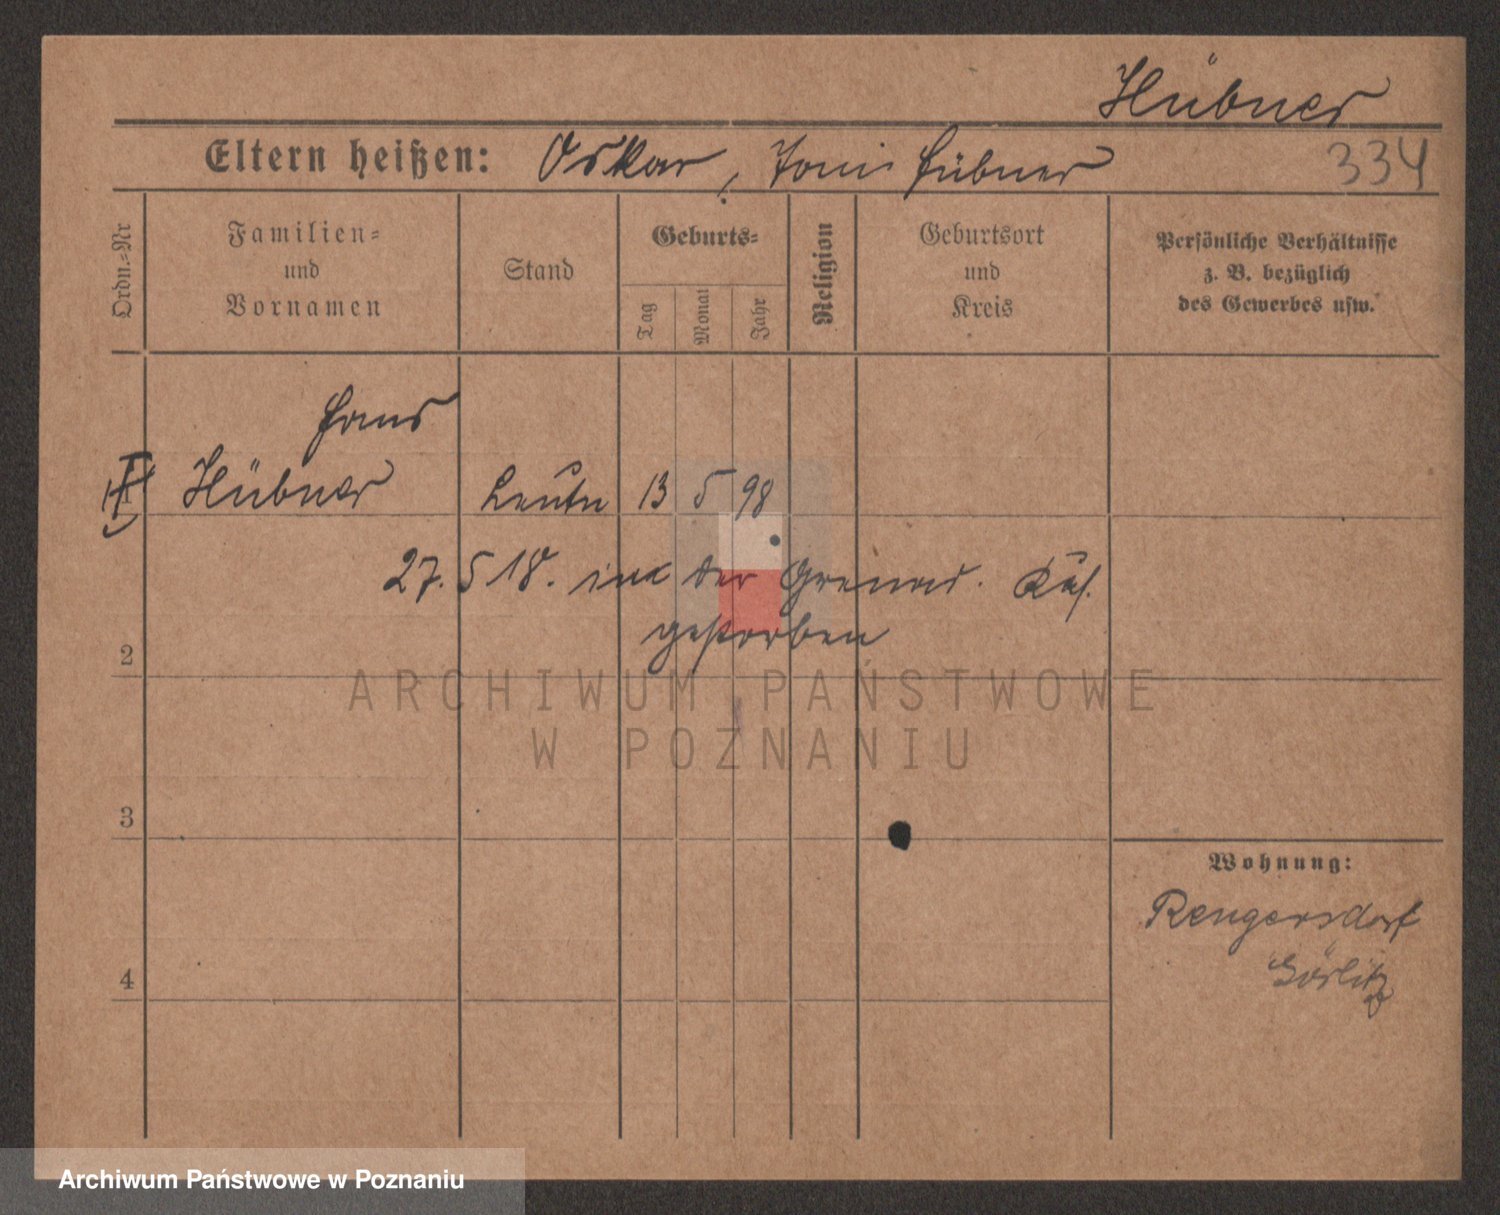 Hübner
Eltern heißen: Oskar, Toni Hübner
334
Ordn.=Nr
Familien=
und
Vornamen
Stand
Geburts=
Tag
Monat
Jahr
Religion
Geburtsort
und
Kreis
Persönliche Verhältnisse
z. B. bezüglich
des Gewerbes usw.
Hans
1 Hübner Leutn 13 5 98
27. 5 18. in der Grenad. Kas.
gestorben
2
ARCHIWUM PAŃSTWOWE
W POZNANIU
3
Wohnung:
Rengersdorf
Görlitz
4
Archiwum Państwowe w Poznaniu